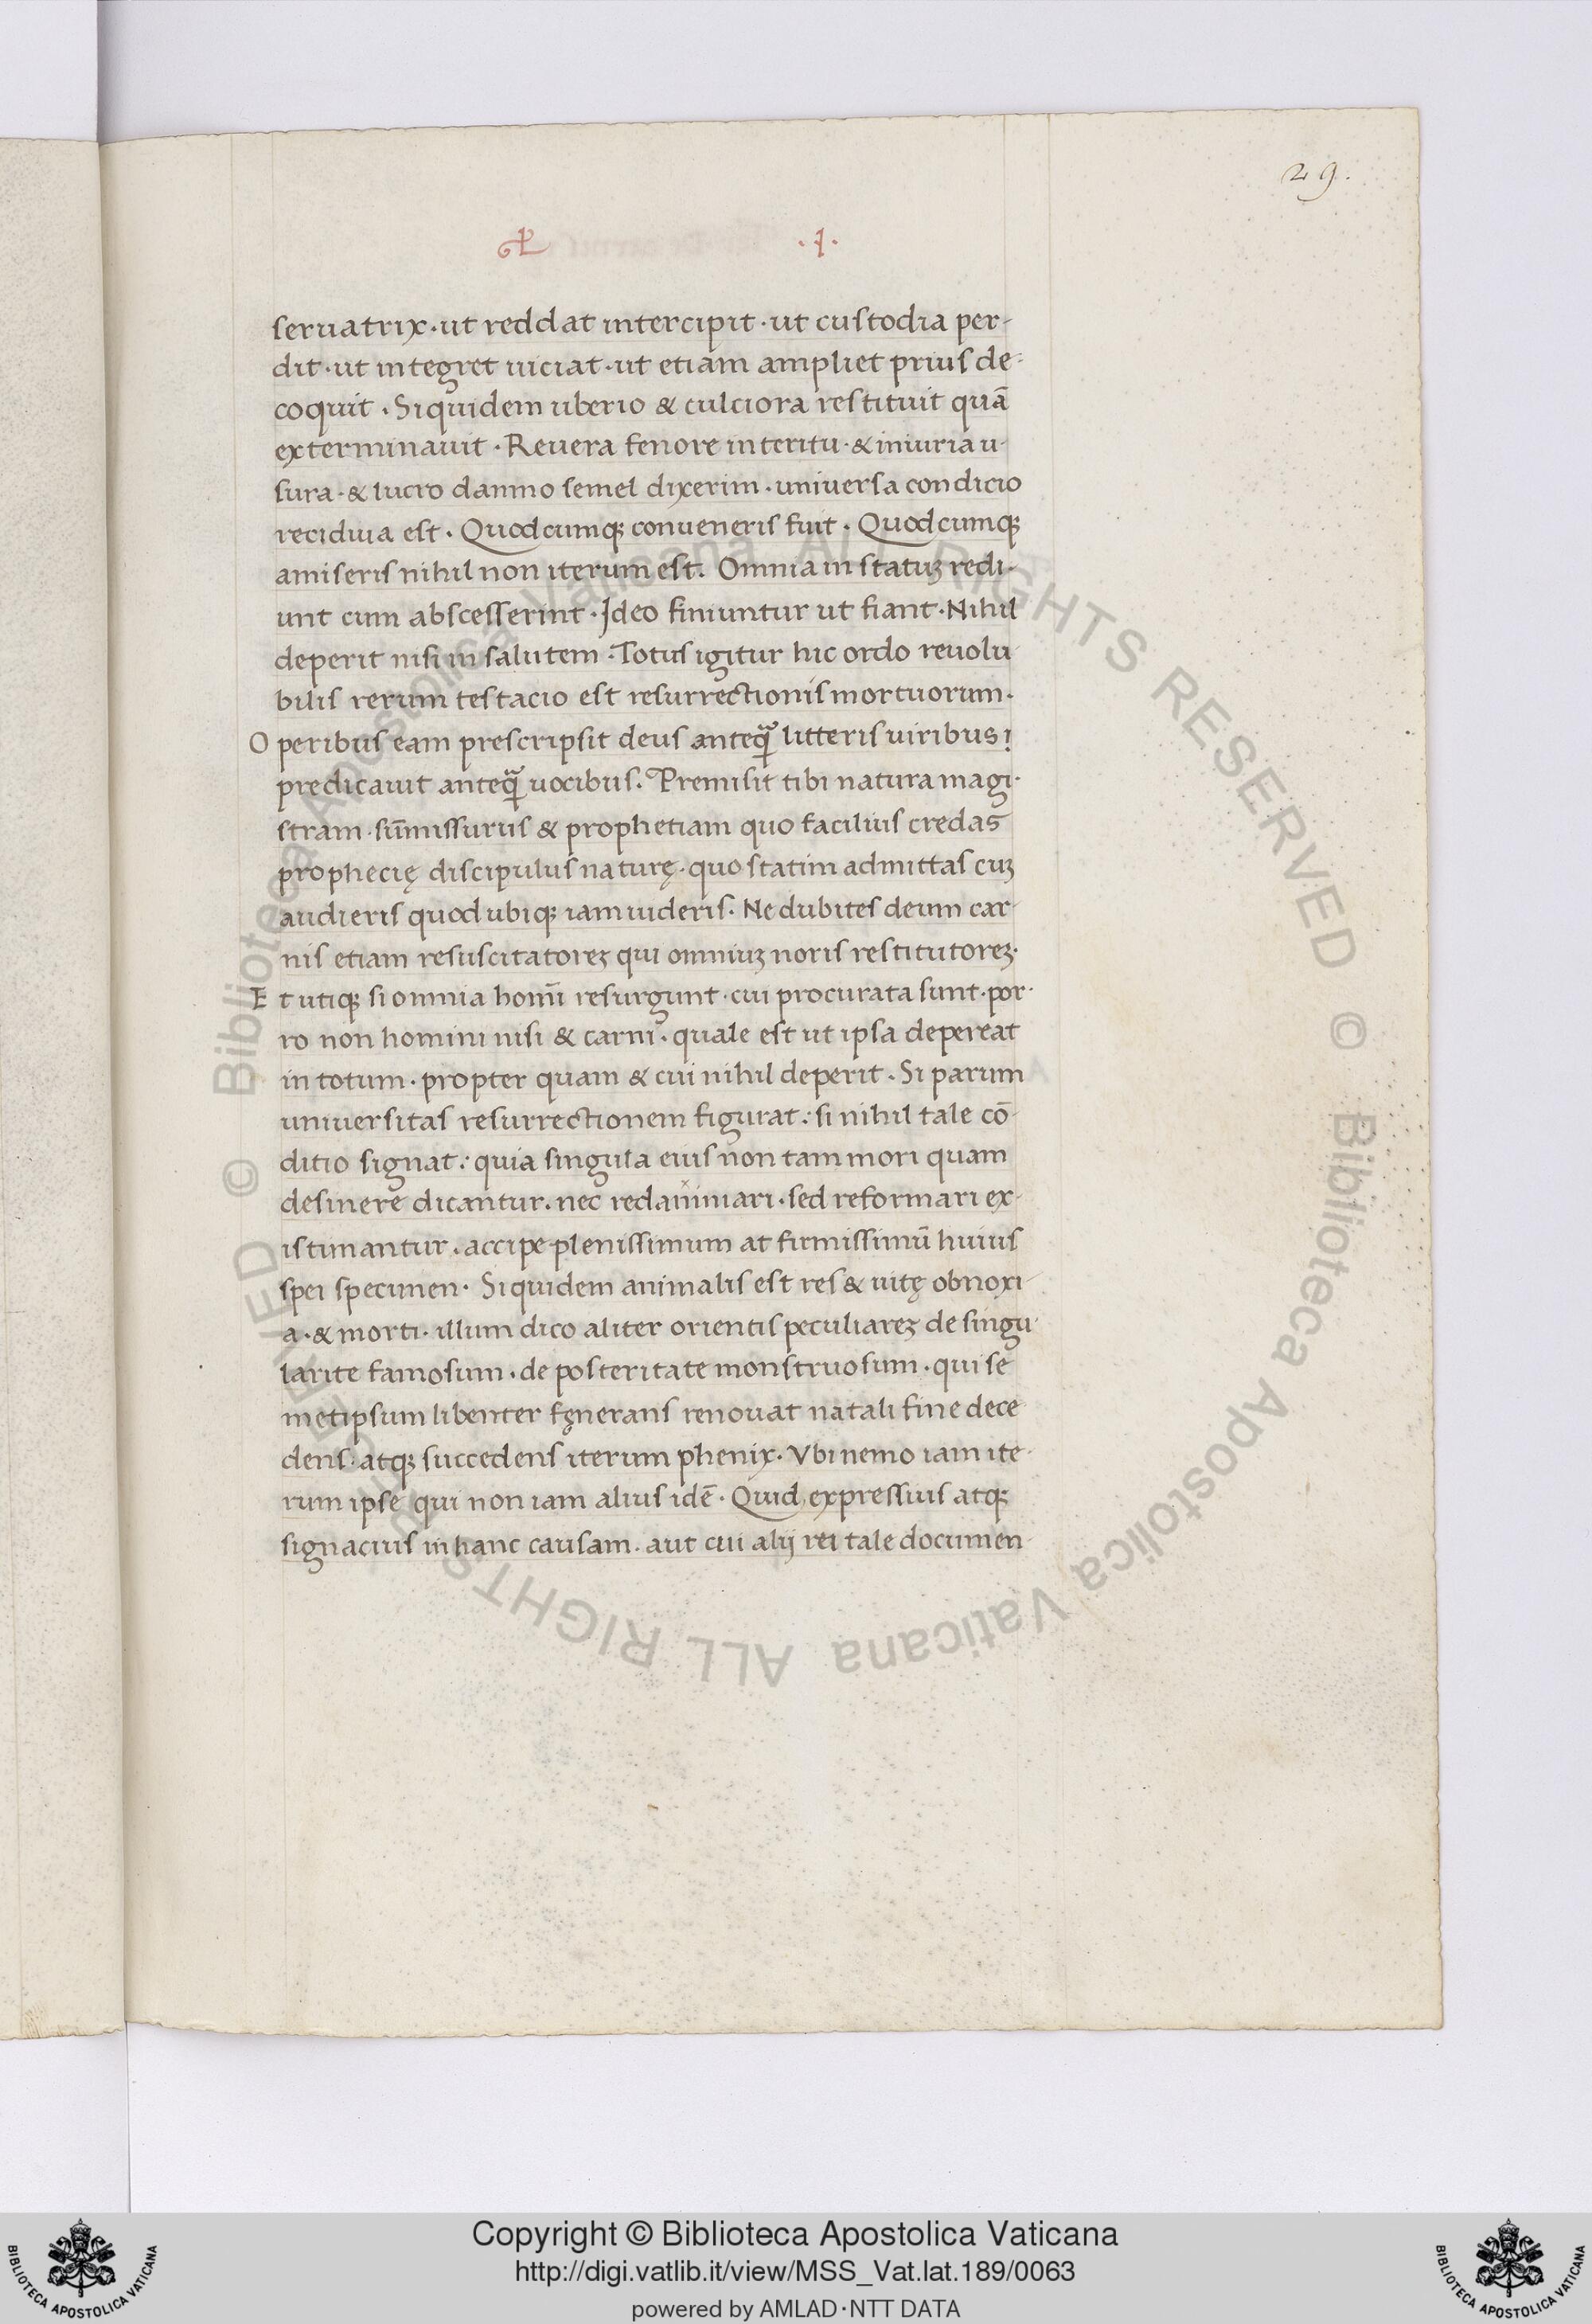 29.
.1.
seruatrix · ut reddat intercipit · ut custodia per-
dit · ut integret uiciat · ut etiam ampliet prius de-
coquit . Siquidem uberio & culciora restituit quā
exterminauit . Reuera fenore interitu · & iniuria u-
sura · & lucro damno semel dixerim . universa condicio
recidiua est . Quodcumq; conueneris fuit . Quodcumq;
amiseris nihil non iterum est. Omnia in statuȝ redi-
unt cum abscesserint . Ideo finiuntur ut fiant . Nihil
deperit nisi in salutem . Totus igitur hic ordo reuolu
bilis rerum testacio est resurrectionis mortuorum.
Operibus eam prescripsit deus anteq̃ litteris uiribus !
predicauit anteq̃ uocibus. Premisit tibi natura magi-
stram · sūmissurus & prophetiam quo facilius credas
prophecię discipulus naturę . quo statim admittas cuȝ
audieris quod ubiq; iam uideris . Ne dubites deum car-
nis etiam resuscitatoreȝ qui omniuȝ noris restitutoreȝ.
Et utiq; si omnia homī resurgunt · cui procurata sunt . por-
ro non homini nisi & carni . quale est ut ipsa depereat
in totum . propter quam & cui nihil deperit . Si parum
universitas resurrectionem figurat : si nihil tale cō-
ditio signat : quia singula eius non tam mori quam
desinere dicantur . nec redanimari . sed reformari ex-
istimantur . accipe plenissimum at firmissimū huius
spei specimen . Siquidem animalis est res & uitę obnoxi-
a . & morti . illum dico aliter orientis peculiareȝ de singu-
larite famosum . de posteritate monstruosum . qui se
metipsum libenter fęnerans renouat natali fine dece
dens . atq; succedens iterum phenix . Vbi nemo iam ite-
rum ipse qui non iam alius idē . Quid expressius atq;
signacius in hanc causam . aut cui alij rei tale documen-
© Biblioteca Apostolica Vaticana ALL RIGHTS RESERVED © Biblioteca Apostolica Vaticana ALL RIGHTS RESERVED
Copyright © Biblioteca Apostolica Vaticana
http://digi.vatlib.it/view/MSS_Vat.lat.189/0063
powered by AMLAD·NTT DATA
BIBLIOTECA APOSTOLICA VATICANA
BIBLIOTECA APOSTOLICA VATICANA